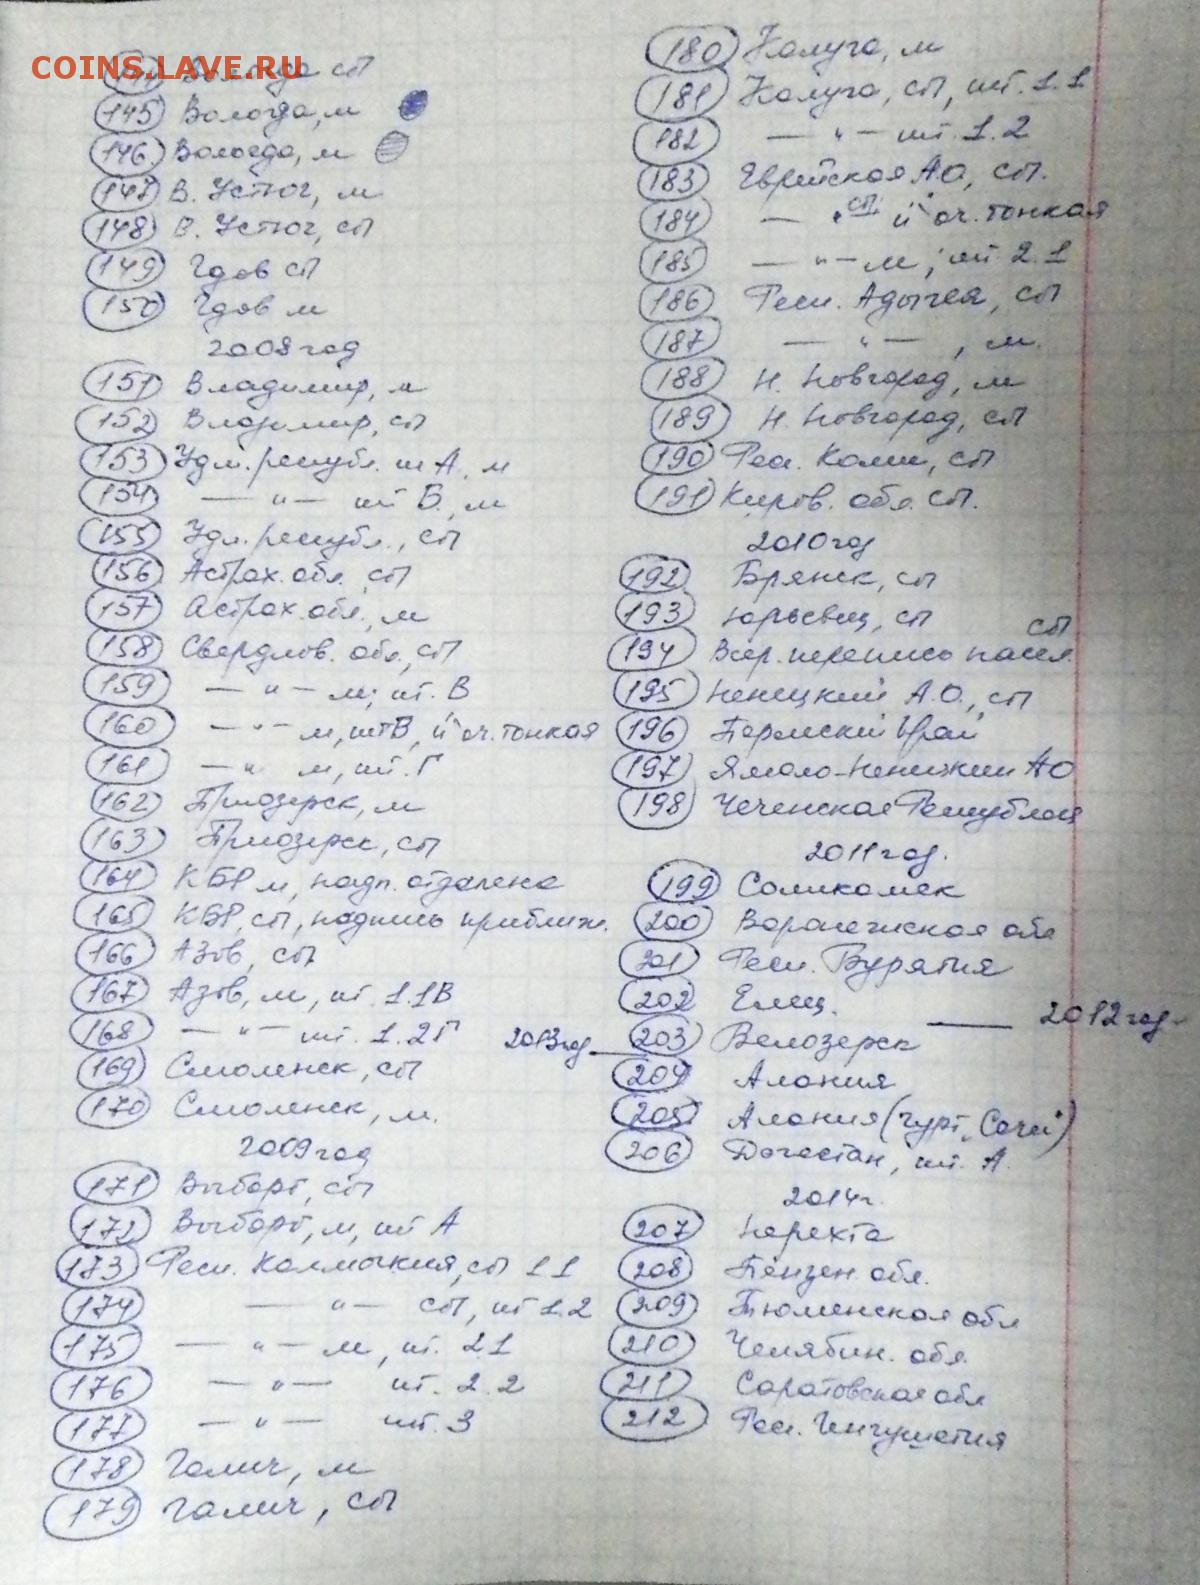 COINS.LAVE.RU
144 Вологда сп
145 Вологда, м
146. Вологда, м
147 В. Устюг, м
148 В. Устюг, сп
149 Гдов сп
150 Гдов м
2008 год
151 Владимир, м
152 Владимир, сп
153 Удм. республ. шт А, м
154 — " — шт Б., м
155 Удм. республ., сп
156 Астрах. обл., сп
157 Астрах. обл., м
158 Свердлов. обл., сп
159 — " — м; шт. В
160 — " — м, шт В, "й" оч. тонкая
161 — " м, шт. Г
162 Приозерск, м
163 Приозерск, сп
164 КБР м, надп. отдалена
165 КБР, сп, надпись приближ.
166 Азов, сп
167 Азов, м, шт. 1.1В
168 — " — шт. 1.2Г
169 Смоленск, сп
170 Смоленск, м.
2009 год
171 Выборг, сп
172 Выборг, м, шт А
173 Респ. Калмыкия, сп 1.1
174 — " — сп, шт 1.2
175 — " — м, шт. 2.1
176 — " — шт. 2.2
177 — " — шт. 3
178 Галич, м
179 Галич, сп
180 Калуга, м
181 Калуга, сп, шт. 1.1
182 — " — шт. 1.2
183 Еврейская А.О, сп.
184 — " сп. "й" оч. тонкая
185 — " — м; шт 2.1
186 Респ. Адыгея, сп
187 — " — , м.
188 Н. Новгород, м
189 Н. Новгород, сп
190 Респ. Коми, сп
191 Киров. обл. сп.
2010 год
192 Брянск, сп
193 Юрьевец, сп
194 Всер. перепись насел. сп
195 Ненецкий А.О., сп
196 Пермский край
197 Ямало-Ненецкий АО
198 Чеченская Республика
2011 год.
199 Соликамск
200 Воронежская обл
201 Респ. Бурятия
202 Елец.
— 2012 год.
203 Белозерск
2013 год —
204 Алания
205 Алания (гурт „Сочи")
206 Дагестан, шт. А.
2014 г.
207 Нерехта
208 Пензен. обл.
209 Тюменская обл
210 Челябин. обл.
211 Саратовская обл
212 Респ. Ингушетия